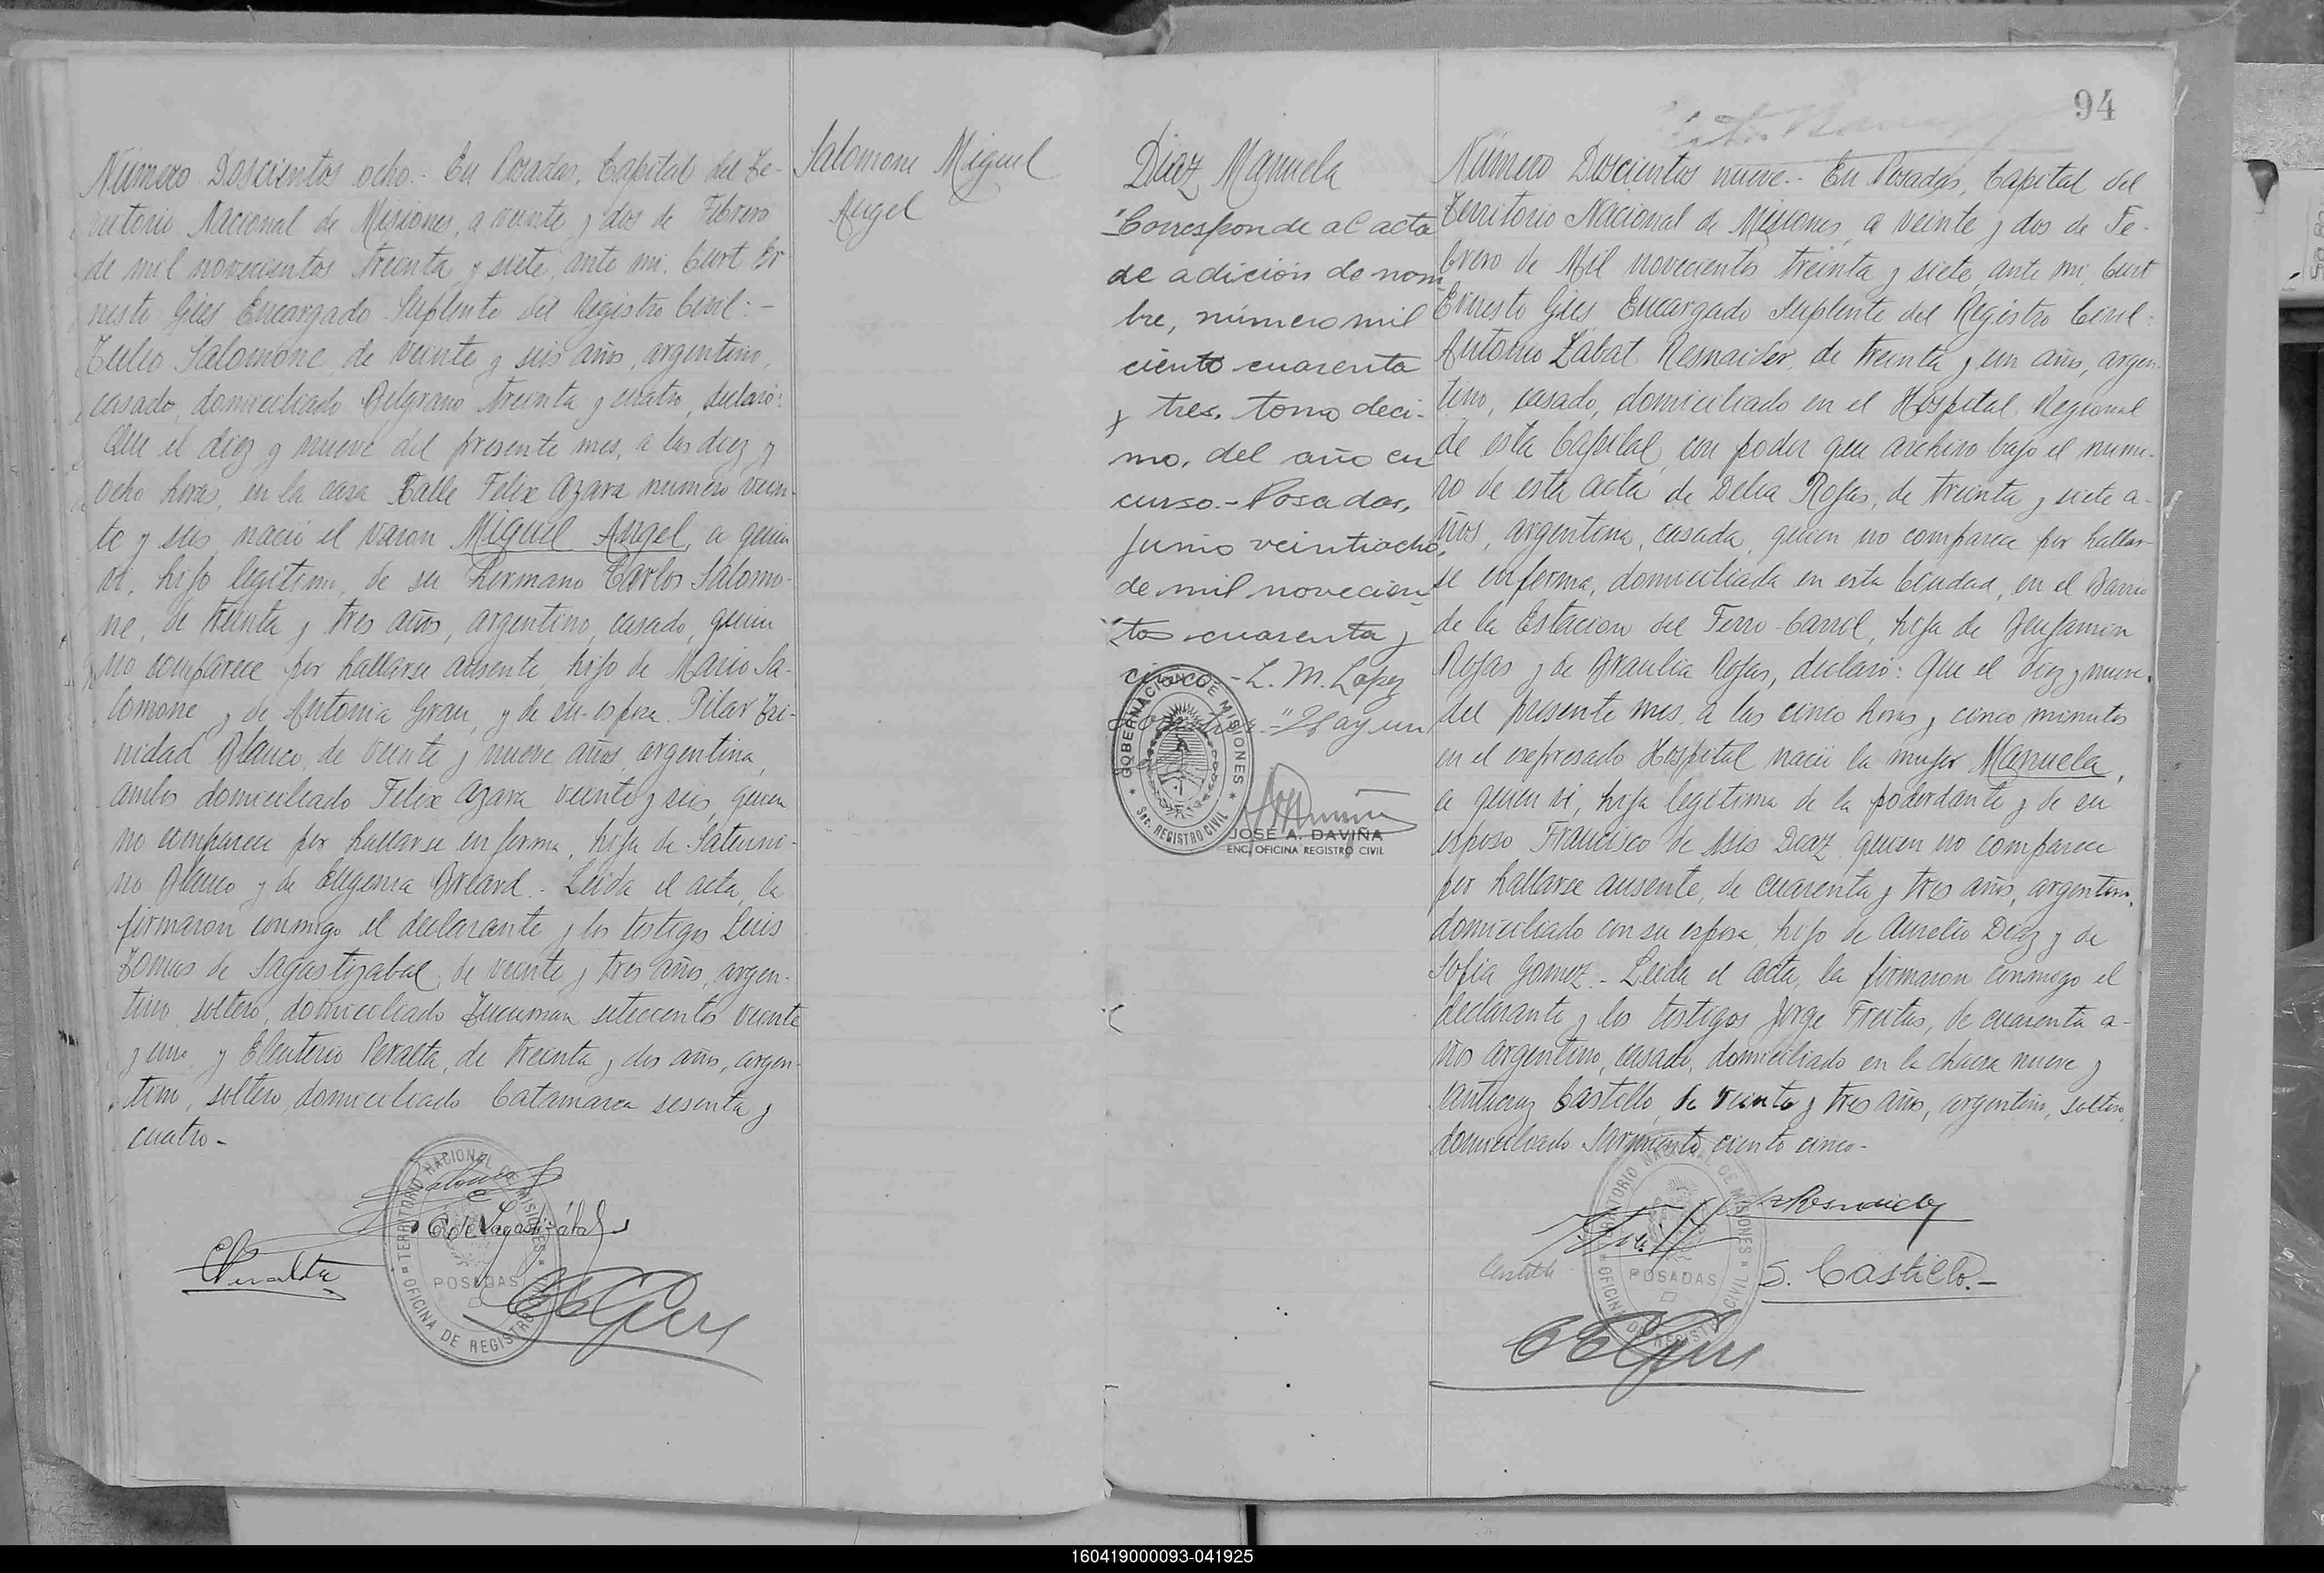 Número Doscientos ocho.- En Posadas, Capital del Te-
rritorio Nacional de Misiones, a veinte y dos de Febrero
de mil novecientos treinta y siete, ante mi. Curt Er
nesto Gies Encargado Suplente del Registro Civil:-
Tulio Salomone, de veinte y seis años, argentino,
casado, domiciliado Belgrano treinta y cuatro, declaró:
Que el diez y nueve del presente mes, a las diez y
ocho horas, en la casa Calle Felix Azara número vein-
te y seis nació el varon Miguel Angel, a quien
ví, hijo legítimo, de su hermano Carlos Salomo-
ne, de treinta y tres años, argentino, casado, quien
no comparece por hallarse ausente, hijo de Mario Sa-
lomone y de Antonia Grau, y de su esposa Pilar Tri-
nidad Blanco, de veinte y nueve años, argentina,
ambos domiciliado Felix Azara veinte y seis, quien
no comparece por hallarse enferma, hija de Saturni-
no Blanco y de Eugenia Breard.- Leida el acta, la
firmaron conmigo el declarante y los testigos Luis
Tomas de Sagastizabal, de veinte y tres años, argen-
tino, soltero, domiciliado Tucuman setecientos veinte
y uno y Eleuterio Peralta, de treinta y dos años, argen-
tino, soltero, domiciliado Catamarca sesenta y
cuatro-
TERRITORIO NACIONAL DE MISIONES
POSADAS
OFICINA DE REGISTRO CIVIL
EPeralta
Salomone Miguel
Angel
94
Diaz Manuela
"Corresponde al acta
de adición de nom
bre, número mil
ciento cuarenta
y tres, tomo deci-
mo, del año en
curso.- Posadas,
Junio veintiocho
de mil novecien
tos cuarenta y
cinco.- L. M. Lopez
"Hay un
GOBERNACION DE MISIONES
Sec. REGISTRO CIVIL
JOSÉ A. DAVIÑA
ENC. OFICINA REGISTRO CIVIL
Número Doscientos nueve.- En Posadas, Capital del
Territorio Nacional de Misiones, a veinte y dos de Fe-
brero de Mil novecientos treinta y siete, ante mi, Curt
Ernesto Gies Encargado Suplente del Registro Civil:
Antonio Labat Resnaider, de treinta y un año, argen-
tino, casado, domiciliado en el Hospital Regional
de esta Capital, con poder que archivo bajo el núme-
ro de esta acta de Delia Rojas, de treinta y siete a-
ños, argentina, casada, quien no comparece por hallar-
se enferma, domiciliada en esta Ciudad, en el Barrio
de la Estacion del Ferro-Carril, hija de Benjamin
Rojas y de Braulia Rojas, declaró: Que el diez y nueve
del presente mes, a las cinco horas y cinco minutos
en el expresado Hospital nació la mujer Manuela,
a quien ví, hija legítima de la poderdante y de su
esposo Francisco de Asis Diaz quien no comparece
por hallarse ausente, de cuarenta y tres años, argentino,
domiciliado con su esposa, hijo de Aurelio Diaz y de
Sofia Gomez.- Leida el acta, la firmaron conmigo el
declarante y los testigos Jorge Freitas, de cuarenta a-
ños argentino, casado, domiciliado en la chacra nueve y
Santacruz Castillo, de veinte y tres años, argentino, soltero,
domiciliado Sarmiento ciento cinco-
TERRITORIO NACIONAL DE MISIONES
POSADAS
OFICINA DE REGISTRO CIVIL
S. Castillo.-
160419000093-041925